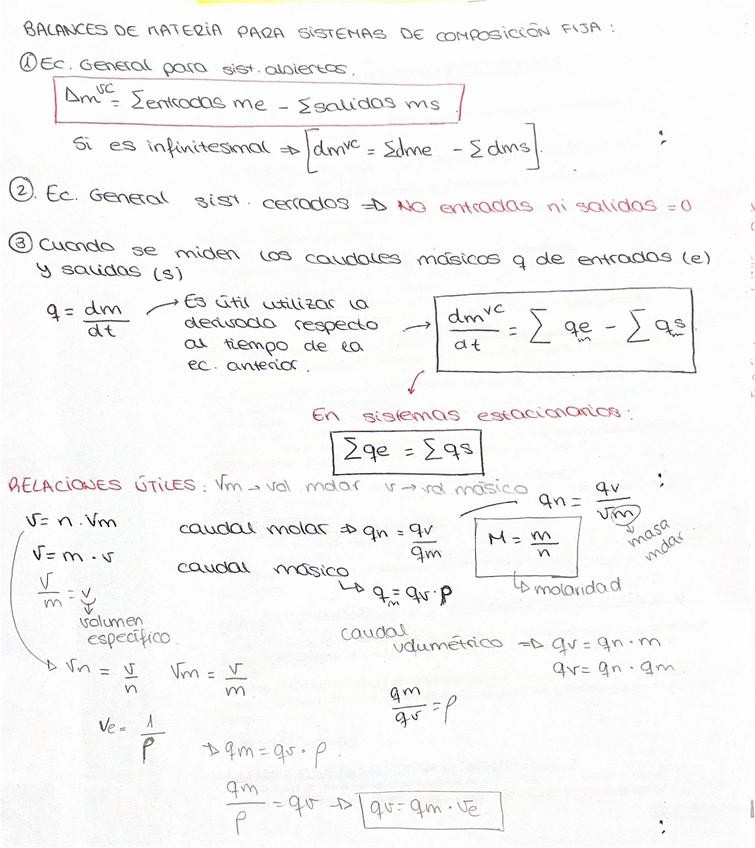 BALANCES DE MATERIA PARA SISTEMAS DE COMPOSICIÓN FIJA:
① Ec. General para sist. abiertos.
Δm^vc = Σentradas me - Σsalidas ms
Si es infinitesimal => [dm^vc = Σdme - Σdms].
②. Ec. General sist. cerrados => NO entradas ni salidas = 0
③ Cuando se miden los caudales másicos q de entradas (e)
y salidas (s)
q = dm/dt → Es útil utilizar la
derivada respecto
al tiempo de la
ec. anterior. → dm^vc/dt = Σ qe_m - Σ qs_m
En sistemas estacionarios:
Σqe = Σqs
RELACIONES ÚTILES: Vm → vol molar v → vol másico
qn = qv/Vm → masa molar
V = n · Vm
caudal molar => qn = qv/qm
M = m/n → molaridad
V = m · v
caudal másico
↳ q_m = qv · ρ
V/m = v
volumen
específico.
caudal
volumétrico => qv = qn · m
qv = qn · qm
Vn = V/n Vm = V/m
qm/qv = ρ
Ve = 1/ρ => qm = qv · ρ.
qm/ρ = qv => qv = qm · Ve